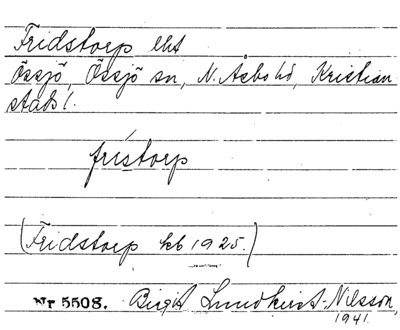 Fridstorp lht
Össjö, Össjö sn, N. Åsbo hd, Kristian
stads l.
frístorp
(Fridstorp kb 1925.)
Nr 5508. Birgit Lundkvist-Nilsson,
1941.